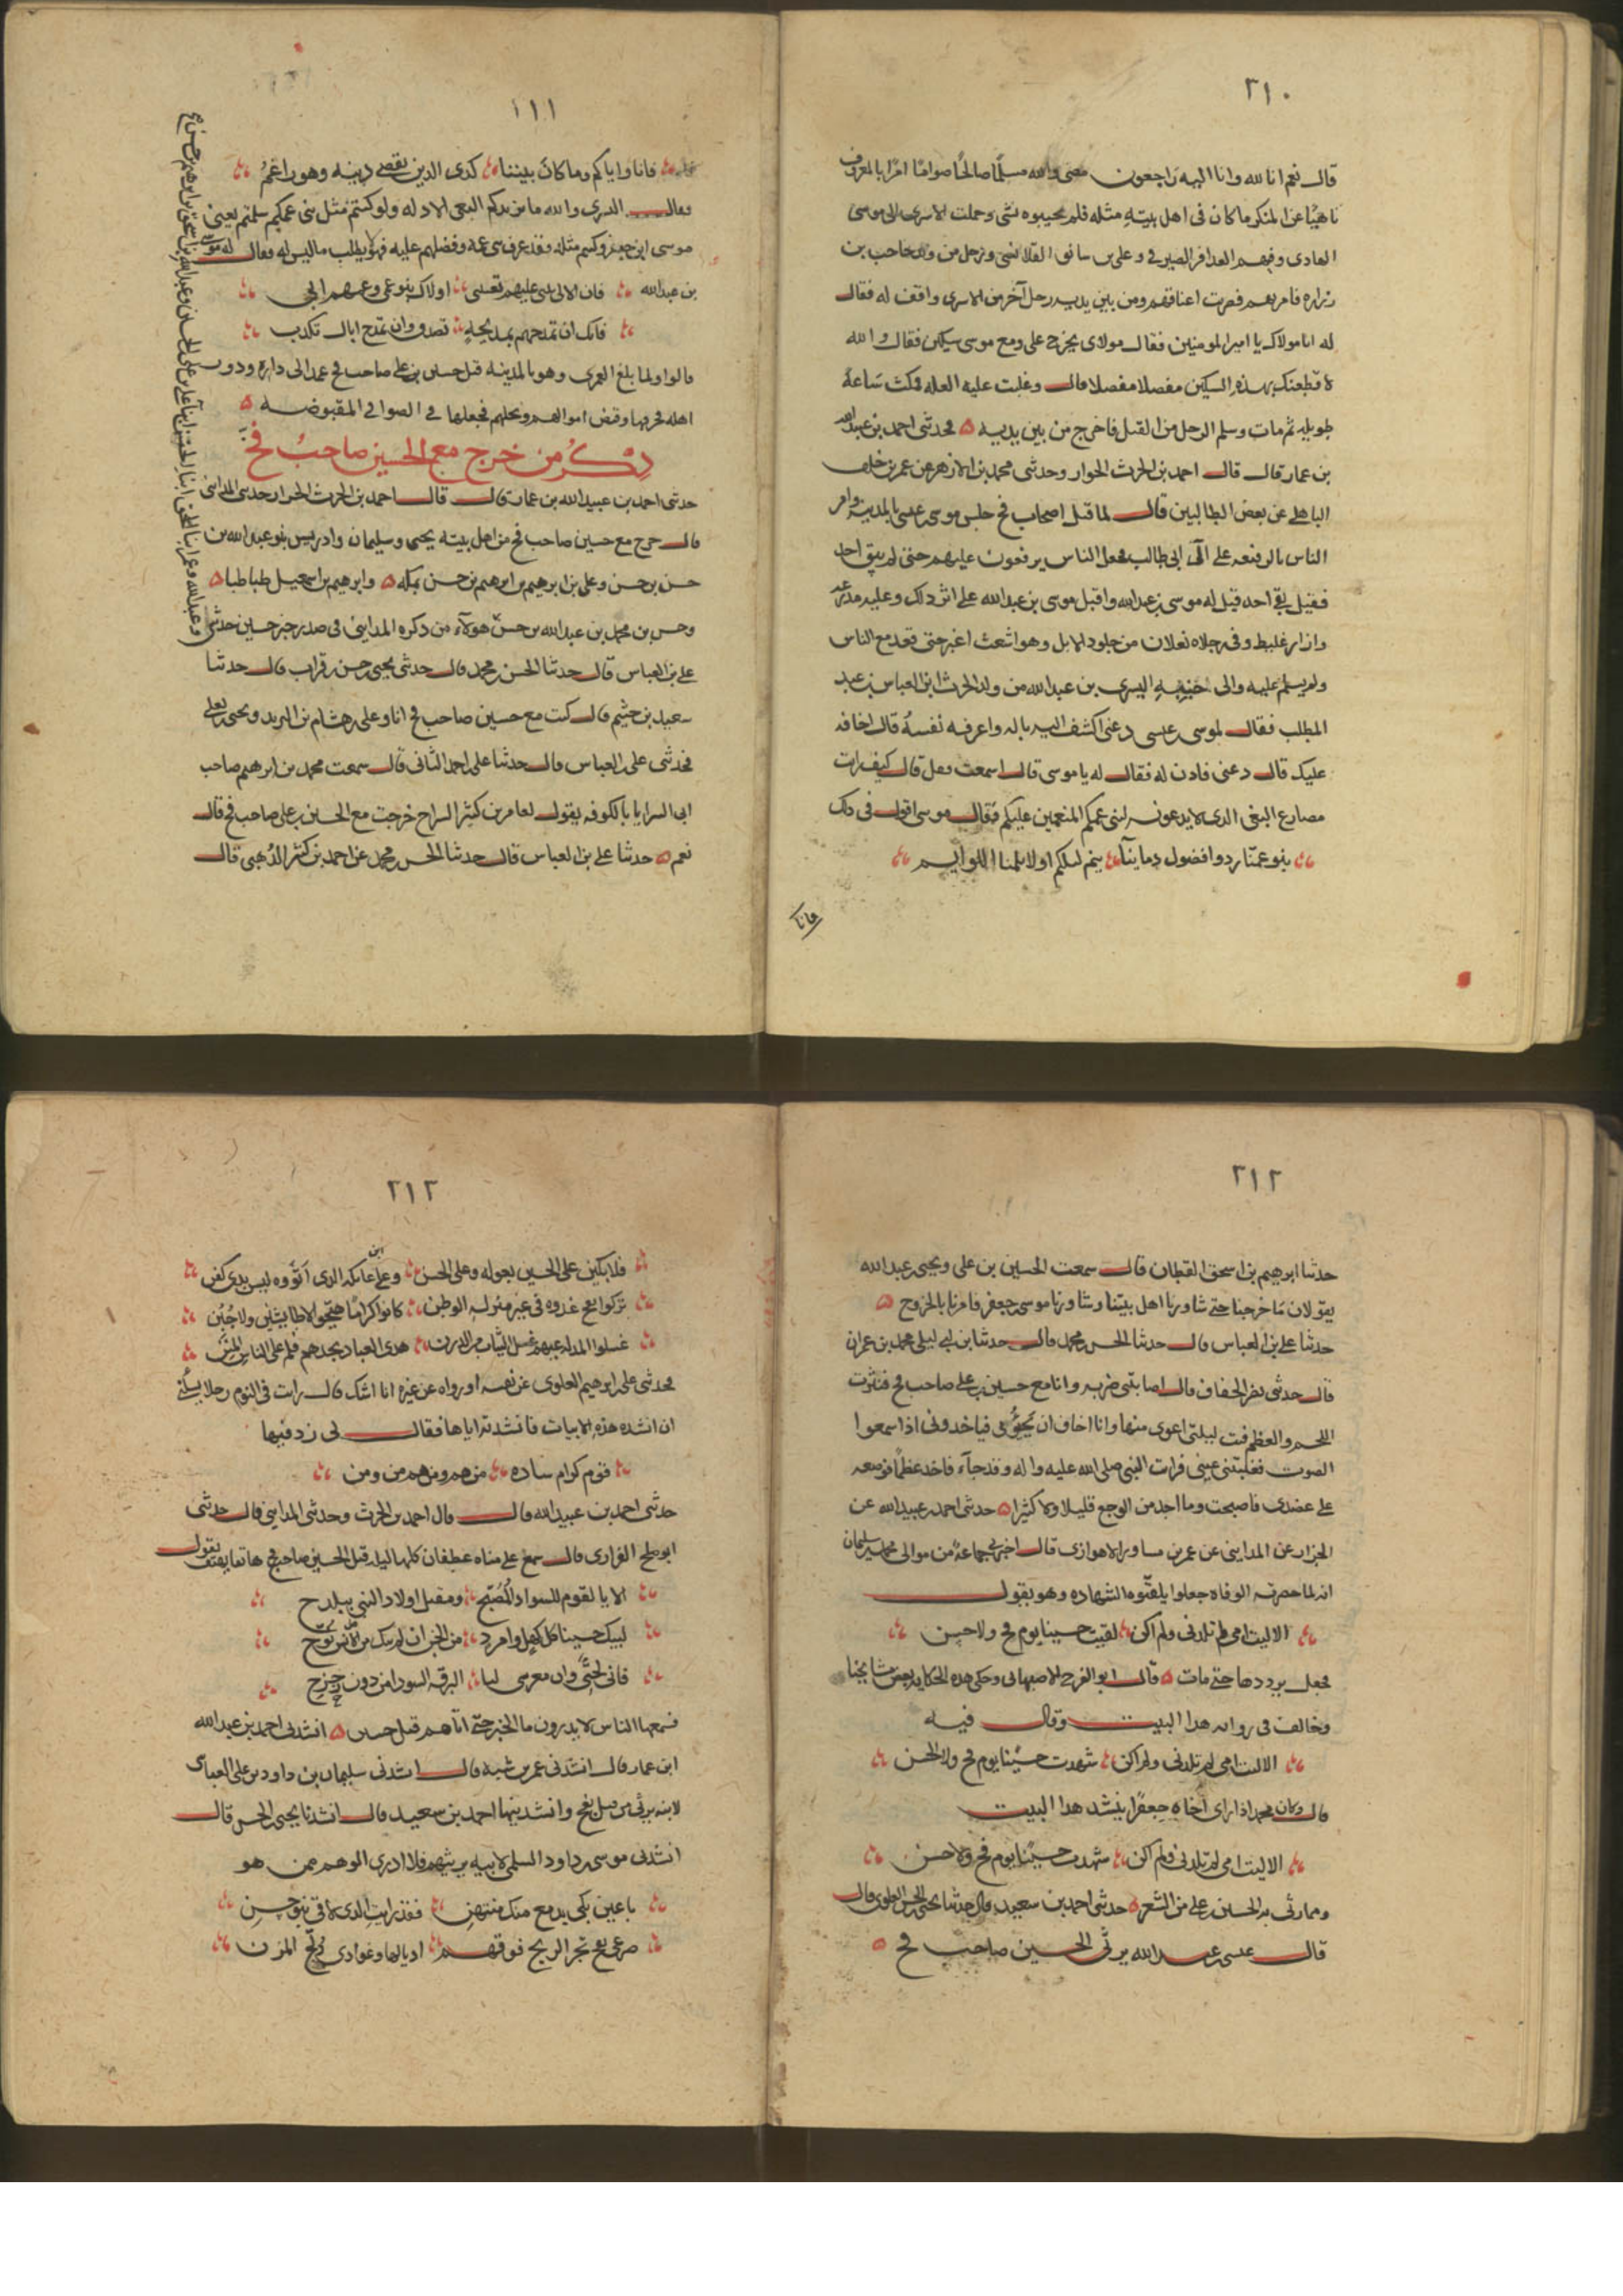 ٢١٠
قال نعم انا لله وانا اليه راجعون مضى والله مسلما صالحا صواما امرا بالمعروف
ناهيا عن المنكر ما كان فى اهل بيته مثله فلم يجيبوه بشى وحملت الاسرى الى موسى
الهادى وفيهم العذافر الصيرفى وعلى بن سابق القلانسى ورجل من ولد حاجب بن
زراره فامر بهم فضربت اعناقهم ومن بين يديه رجل آخر من الاسرى واقف له فقال
له انا مولاك يا امير المومنين فقال مولاى يخرج على ومع موسى سكين فقال والله
لاقطعنك بهذه السكين مفصلا مفصلا قال وغلبت عليه العله فمكث ساعة
طويله ثم مات وسلم الرجل من القتل فاخرج من بين يديه ٥ فحدثنى احمد بن عبيد الله
بن عمار قال قال احمد بن الحرث الخراز وحدثنى محمد بن الازهر عن عمر بن خلف
الباهلى عن بعض الطالبيين قال لما قتل اصحاب فخ جلس موسى بن عيسى بالمدينه وامر
الناس بالوقيعه على آل ابى طالب فجعل الناس يوقعون عليهم حتى لم يبق احد
فقيل بقى احد قيل له موسى بن عبد الله واقبل موسى بن عبد الله على اثر ذلك وعليه مدرعه
وازار غليظ وفى رجلاه نعلان من جلود الابل وهو اشعث اغبر حتى قعد مع الناس
ولم يسلم عليه والى جنبه السرى بن عبد الله من ولد الحرث ابن العباس بن عبد
المطلب فقال لموسى بن عيسى دعنى اكشف اليه باله واعرفه نفسه قال اخافه
عليك قال دعنى فاذن له فقال له يا موسى قال اسمعت فقل قال كيف رايت
مصارع البغى الذى لا تدعونه لبنى عمكم المنعمين عليكم فقال موسى اقول فى ذلك
بنو عمنا ردوا فضول دماينا ينم ليلكم اولا يلمنا اللوايم
فانا
٢١١
فانا واياكم وما كان بيننا كذى الدين يقضى دينه وهو راغم
فقال السرى والله ما يزيدكم البغى الا ذله ولو كنتم مثل بنى عمكم سلمتم يعنى
موسى ابن جعفر وكنتم مثله فقد عرف حق بنى عمه وفضلهم عليه فهو لا يطلب ما ليس له فقال له موسى
بن عبد الله فان الالى تثنى عليهم تعيبنى اولاك بنو عمى وعمهم ابى
فانك ان تمدحهم بمديحة تصدق وان تمدح اباك تكذب
قالوا ولما بلغ العمرى وهو بالمدينه قتل حسين بن على صاحب فخ عمد الى داره ودور
اهله فحرقها وقبض اموالهم ونخلهم فجعلها فى الصوافى المقبوضه ٥
ذكر من خرج مع الحسين صاحب فخ
حدثنى احمد بن عبيد الله بن عمار قال قال احمد بن الحرث الخراز حدثنى المداينى
قال خرج مع حسين صاحب فخ من اهل بيته يحيى وسليمان وادريس بنو عبد الله بن
حسن بن حسن وعلى بن ابرهيم بن ابرهيم بن حسن بمكه ٥ وابرهيم بن اسمعيل طباطبا ٥
وحسن بن محمد بن عبد الله بن حسن هولاء من ذكره المداينى فى صدر خبر حسين حدثنى
على بن العباس قال حدثنا الحسن بن محمد قال حدثنى يحيى بن حسن بن فرات قال حدثنا
سعيد بن خثيم قال كنت مع حسين صاحب فخ انا وعلى بن هشام بن البريد ويحيى بن يعلى
فحدثنى على بن العباس قال حدثنا على بن احمد البنانى قال سمعت محمد بن ابرهيم صاحب
ابى السرايا بالكوفه يقول لعامر بن كثير السراج خرجت مع الحسين بن على صاحب فخ قال
نعم ٥ حدثنا على بن العباس قال حدثنا الحسن بن محمد عن احمد بن كثير الذهبى قال
٢١٢
حدثنا ابرهيم بن اسحق القطان قال سمعت الحسين بن على ويحيى بن عبد الله
يقولان ما خرجنا حتى شاورنا اهل بيتنا وشاورنا موسى بن جعفر فامرنا بالخروج ٥
حدثنا على بن العباس قال حدثنا الحسن بن محمد قال حدثنا بن ابى ليلى محمد بن عمران
قال حدثنى نصر الخفاف قال اصابتنى ضربه وانا مع حسين بن على صاحب فخ فبترت
اللحم والعظم فبت ليلتى اعوى منها وانا اخاف ان يجؤنى فياخذونى اذا سمعوا
الصوت فغلبتنى عينى فرايت النبى صلى الله عليه واله وقد جآء فاخذ عظما فوضعه
على عضدى فاصبحت وما اجد من الوجع قليلا ولا كثيرا ٥ حدثنى احمد بن عبيد الله عن
الخزاز عن المداينى عن عمر بن مساور الاهوازى قال اخبرنى جماعة من موالى محمد بن سليمان
انه لما حضرته الوفاه جعلوا يلقنوه الشهاده وهو يقول
الا ليت امى لم تلدنى ولم اكن لقيت حسينا يوم فخ ولا حسن
فجعل يرددها حتى مات ٥ قال ابو الفرج الاصبهانى وحكى هذه الحكايه بعض مشايخنا
وخالف فى روايه هذا البيت وقال فيه
الا ليت امى لم تلدنى ولم اكن شهدت حسينا يوم فخ ولا الحسن
قال وكان محمد اذا راى اخاه جعفرا ينشد هذا البيت
الا ليت امى لم تلدنى فلم اكن شهدت حسينا يوم فخ ولا حسن
ومما رثى به الحسين بن على من الشعر ٥ حدثنى احمد بن سعيد قال حدثنا يحيى بن الحسن العلوى قال
قال عيسى بن عبد الله يرثى الحسين صاحب فخ ٥
٢١٣
فلابكين على الحسين بعوله وعلى الحسن وعلى ابن عاتكه الذى اثووه ليس بذى كفن
تركوا بفخ غدوه فى غير منزله الوطن كانوا كراما هيجوا لا طايشين ولا جبن
غسلوا المذله عنهم غسل الثياب من الدرن هدى العباد بجدهم فلهم على الناس المنن
فحدثنى على بن ابرهيم العلوى عن نفسه او رواه عن غيره انا اشك قال رايت فى النوم رجلا يسألنى
ان انشده هذه الابيات فانشدته اياها فقال لى زد فيها
قوم كرام ساده من هم ومن هم من ومن
حدثنى احمد بن عبيد الله قال قال احمد بن الحرث وحدثنى المداينى قال حدثنى
ابو صلح الفزارى قال سمع على مياه غطفان كلها ليله قتل الحسين صاحب فخ هاتفا يهتف يقول
الا يا لقوم للسواد المصبح ومقتل اولاد النبى ببلدح
ليبك حسينا كل كهل وامرد من الجن ان لم يبك من الانس نوح
فانى لجنى وان معرسى لبا البرقه السودا من دون زحزح
فسمعها الناس لا يدرون ما الخبر حتى اتاهم قتل حسين ٥ انشدنى احمد بن عبيد الله
ابن عمار قال انشدنى عمر بن شبه قال انشدنى سليمان بن داود بن على العباسى
لابيه يرثى من قتل بفخ وانشدنيها احمد بن سعيد قال انشدنا يحيى بن الحسن قال
انشدنى موسى بن داود السلمى لابيه يرثيهم فلا ادرى الوهم ممن هو
يا عين بكى بدمع منك منتهن فقد رايت الذى لاقى بنو حسن
صرعى بفخ تجر الريح فوقهم اذيالها وغوادى دلح المزن